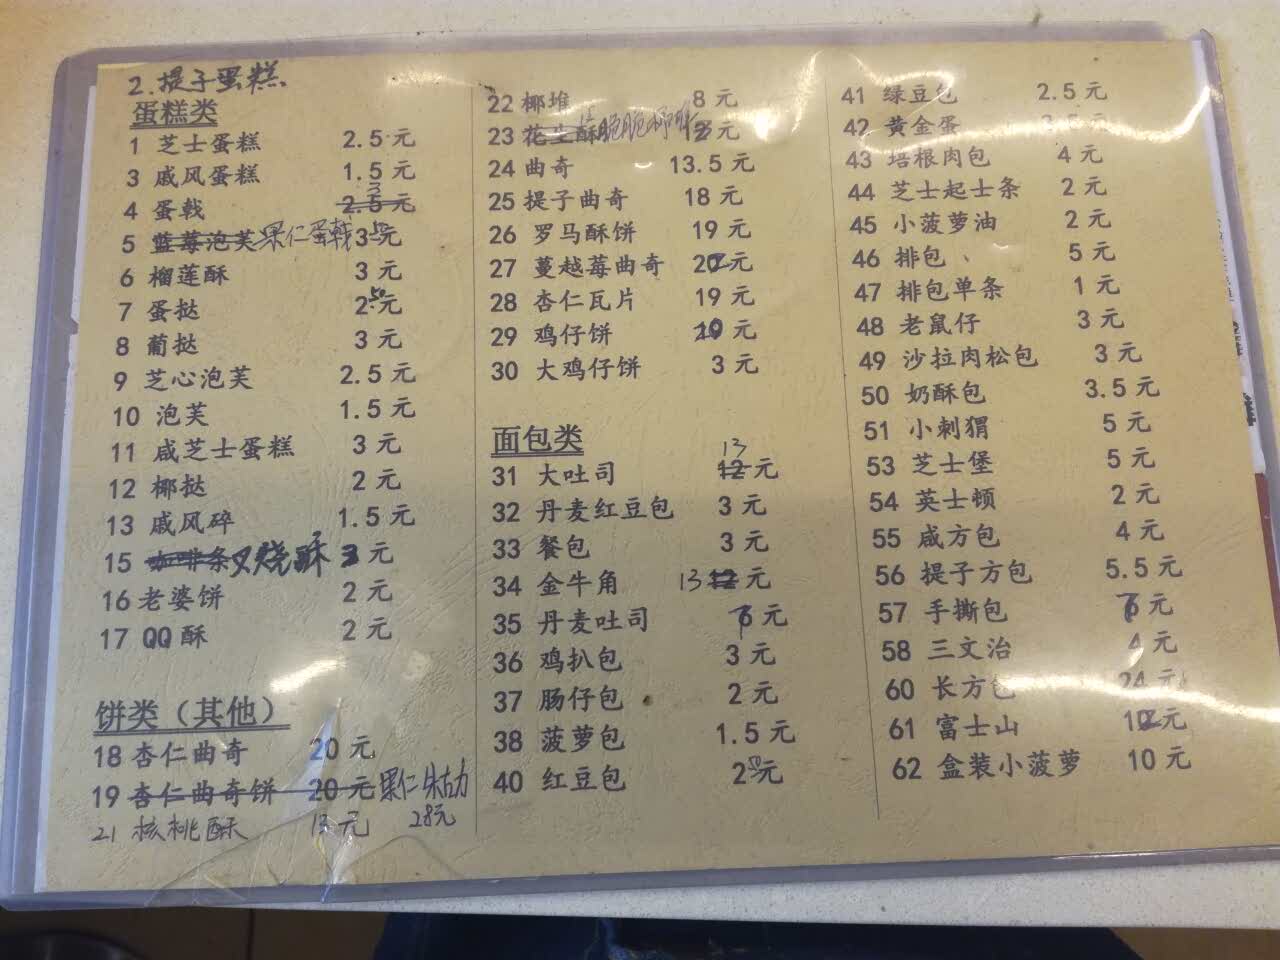 2.提子蛋糕
蛋糕类
1 芝士蛋糕 2.5元
3 戚风蛋糕 1.5元
4 蛋戟 2.5元 3
5 蓝莓泡芙 果仁蛋戟 3元
6 榴莲酥 3元
7 蛋挞 2.50元
8 葡挞 3元
9 芝心泡芙 2.5元
10 泡芙 1.5元
11 戚芝士蛋糕 3元
12 椰挞 2元
13 戚风碎 1.5元
15 咖啡条 叉烧酥 3元
16 老婆饼 2元
17 QQ酥 2元
饼类（其他）
18 杏仁曲奇 20元
19 杏仁曲奇饼 20元 果仁朱古力
28元
21 核桃酥 13元
22 椰堆 8元
23 花生酥 元
24 曲奇 13.5元
25 提子曲奇 18元
26 罗马酥饼 19元
27 蔓越莓曲奇 22元
28 杏仁瓦片 19元
29 鸡仔饼 元
30 大鸡仔饼 3元
面包类
31 大吐司 12元 13
32 丹麦红豆包 3元
33 餐包 3元
34 金牛角 13 12元
35 丹麦吐司 元
36 鸡扒包 3元
37 肠仔包 2元
38 菠萝包 1.5元
40 红豆包 2.50元
41 绿豆包 2.5元
42 黄金蛋 元
43 培根肉包 4元
44 芝士起士条 2元
45 小菠萝油 2元
46 排包 5元
47 排包单条 1元
48 老鼠仔 3元
49 沙拉肉松包 3元
50 奶酥包 3.5元
51 小刺猬 5元
53 芝士堡 5元
54 英士顿 2元
55 戚方包 4元
56 提子方包 5.5元
57 手撕包 元
58 三文治 4元
60 长方包 24元
61 富士山 12元
62 盒装小菠萝 10元